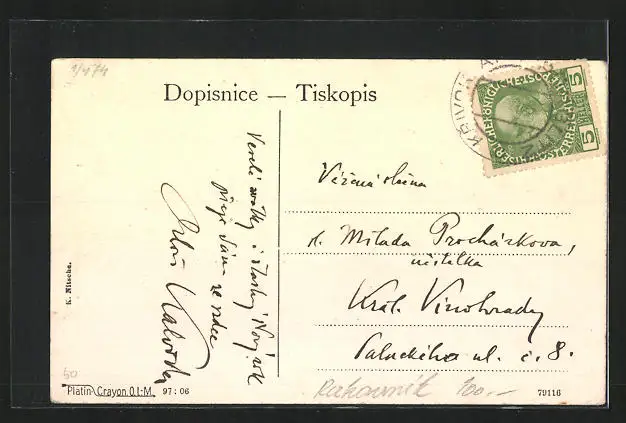 1/474
Dopisnice — Tiskopis
KŘIVOKLÁT
5 HELLER 5
Veselé svátky i šťastný Nový rok
přeje Vám ze srdce
Vážená slečna
sl. Milada Procházkova,
učitelka
Král. Vinohrady
Palackého ul. č. 8.
K. Nitsche.
50
Platin Crayon O.L.M. 97:06
Rakovník 100.–
79116